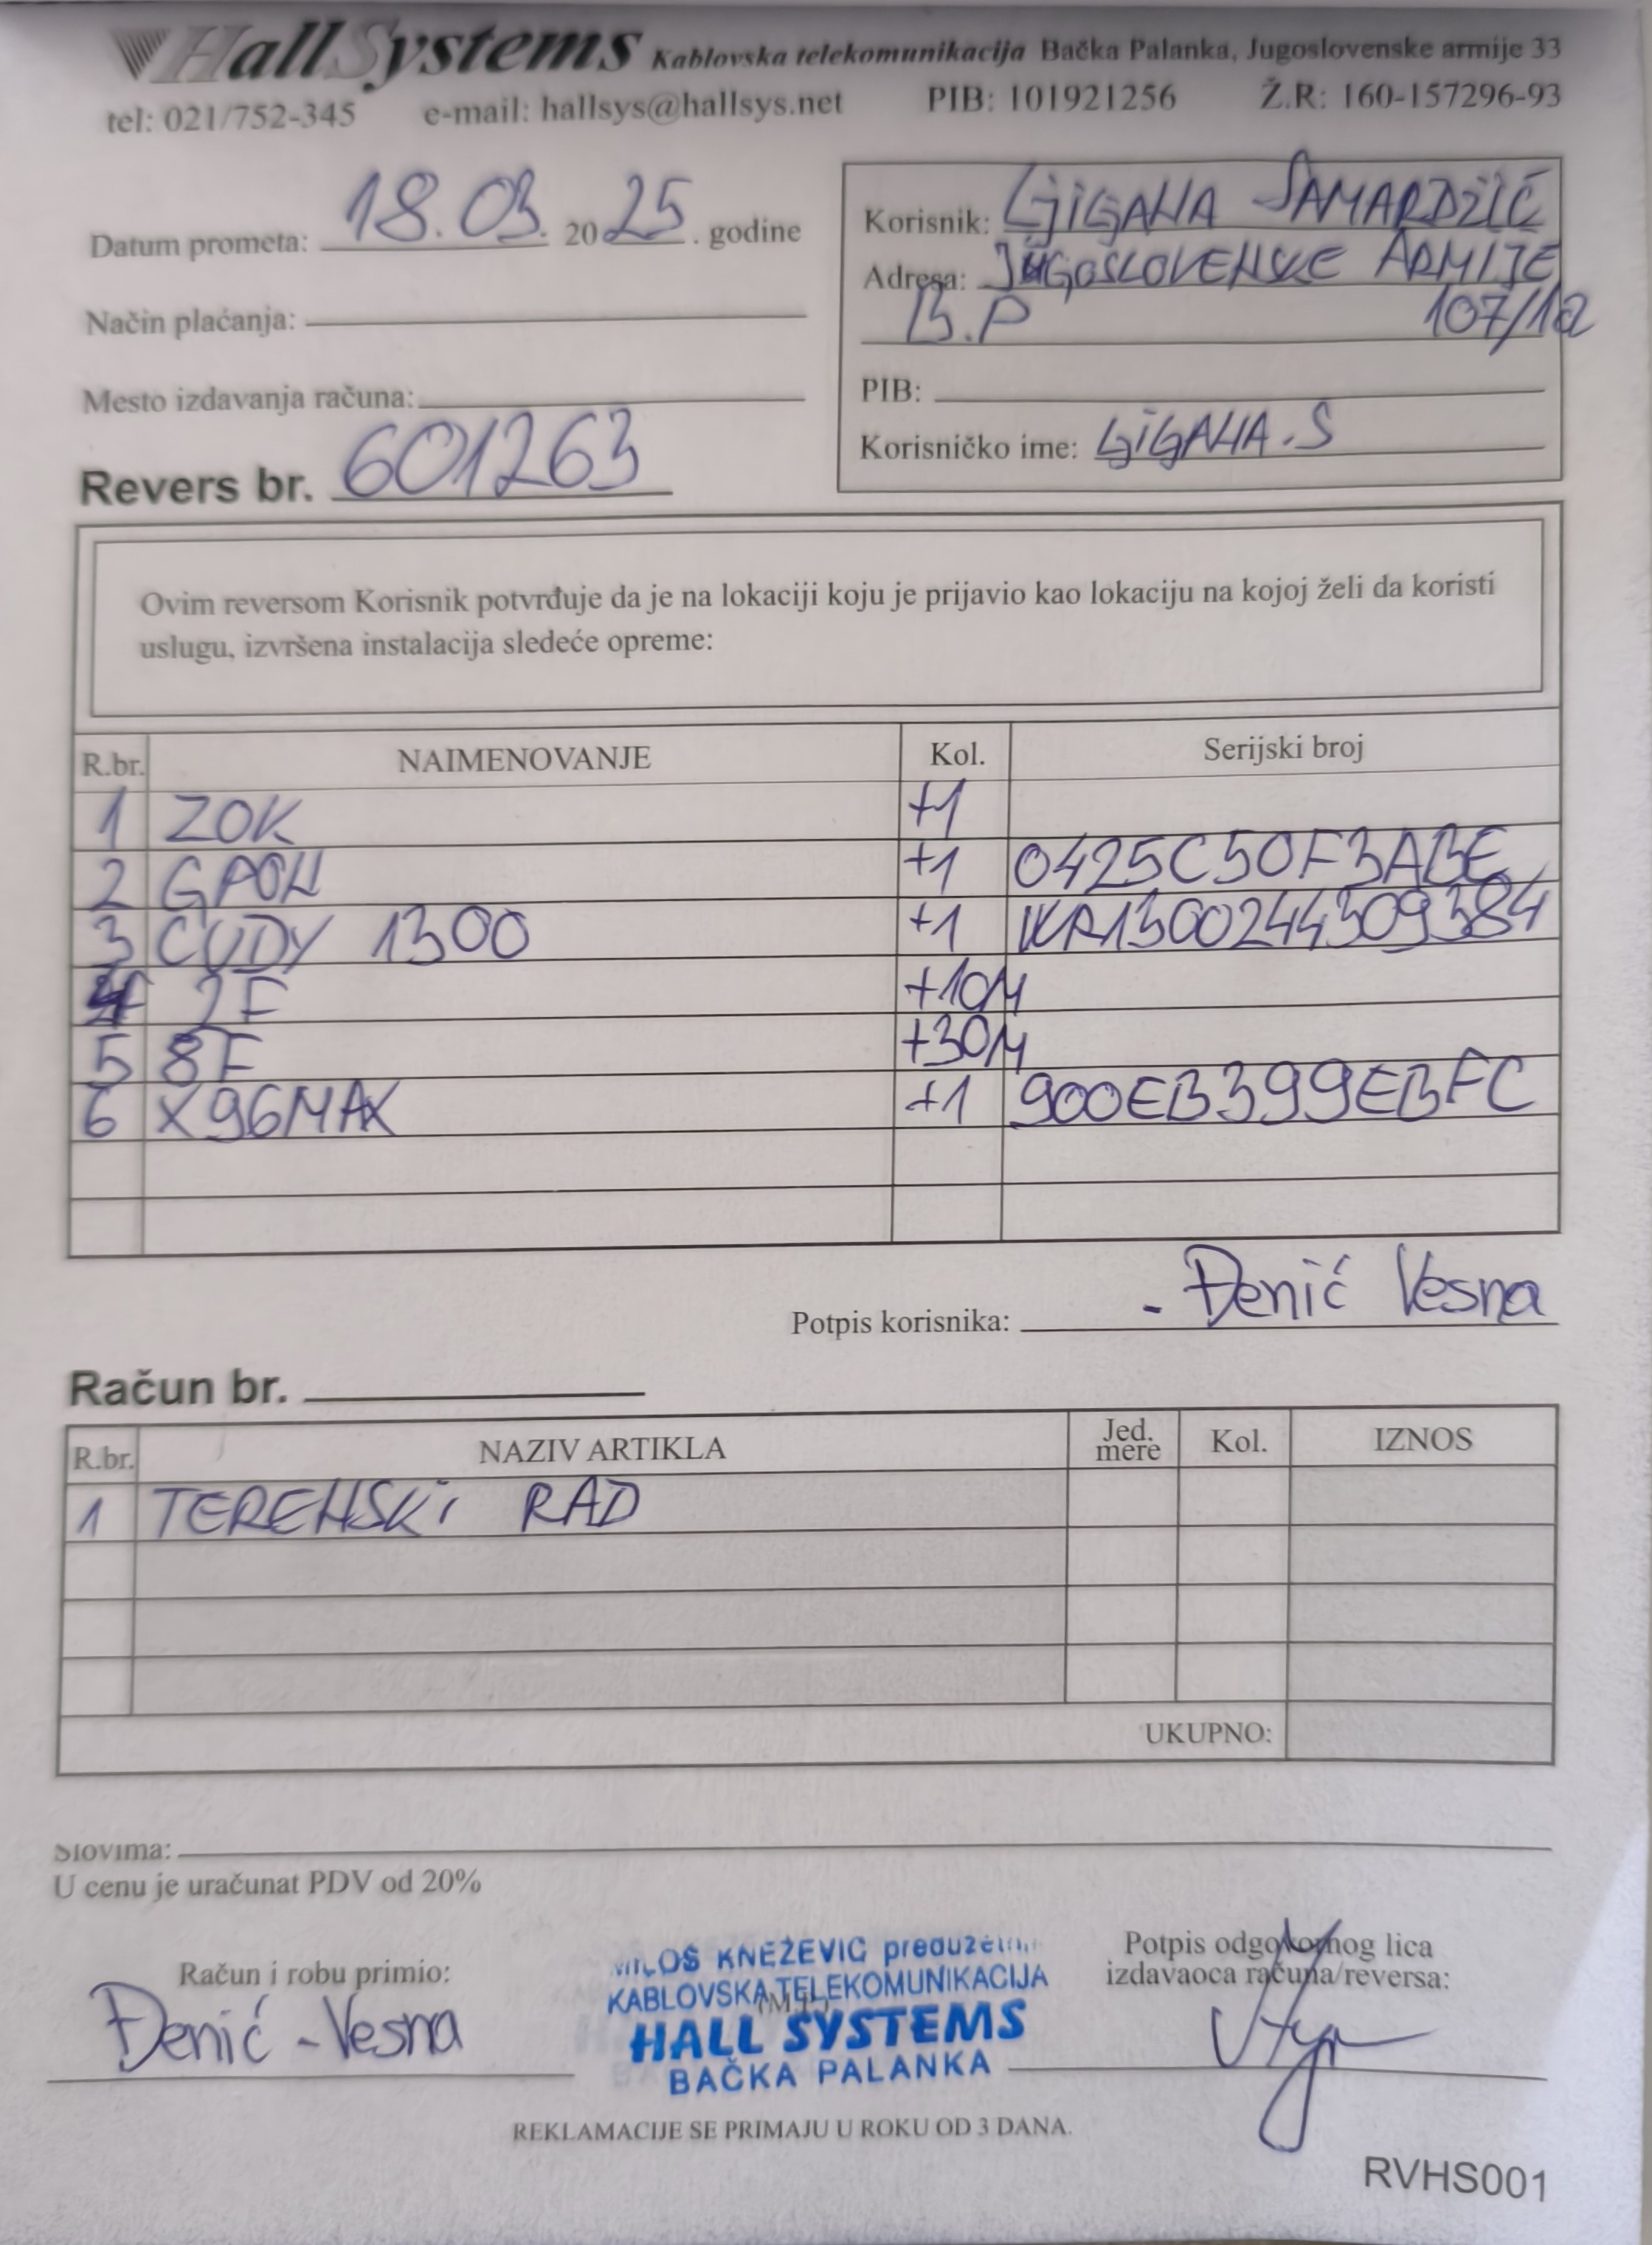 HallSystems Kablovska telekomunikacija Bačka Palanka, Jugoslovenske armije 33
tel: 021/752-345 e-mail: hallsys@hallsys.net PIB: 101921256 Ž.R: 160-157296-93
Datum prometa: 18.03. 2025. godine
Način plaćanja:
Mesto izdavanja računa:
Revers br. 601263
Korisnik: LJIGANA SAMARDŽIĆ
Adresa: JUGOSLOVENSKE ARMIJE
B.P 107/12
PIB:
Korisničko ime: LJIGANA.S
Ovim reversom Korisnik potvrđuje da je na lokaciji koju je prijavio kao lokaciju na kojoj želi da koristi
uslugu, izvršena instalacija sledeće opreme:
R.br. NAIMENOVANJE Kol. Serijski broj
1 ZOK +1
2 GPON +1 0425C50F3ABE
3 CUDY 1300 +1 WR1300244309384
4 2F +10M
5 8F +30M
6 X96MAX +1 900EB399EBFC
Potpis korisnika: - Đenić Vesna
Račun br.
R.br. NAZIV ARTIKLA Jed. mere Kol. IZNOS
1 TERENSKi RAD
UKUPNO:
Slovima:
U cenu je uračunat PDV od 20%
Račun i robu primio:
Đenić - Vesna
MILOŠ KNEŽEVIĆ preduzetnik
KABLOVSKA TELEKOMUNIKACIJA
(M.P.)
HALL SYSTEMS
BAČKA PALANKA
Potpis odgovornog lica
izdavaoca računa/reversa:
REKLAMACIJE SE PRIMAJU U ROKU OD 3 DANA.
RVHS001